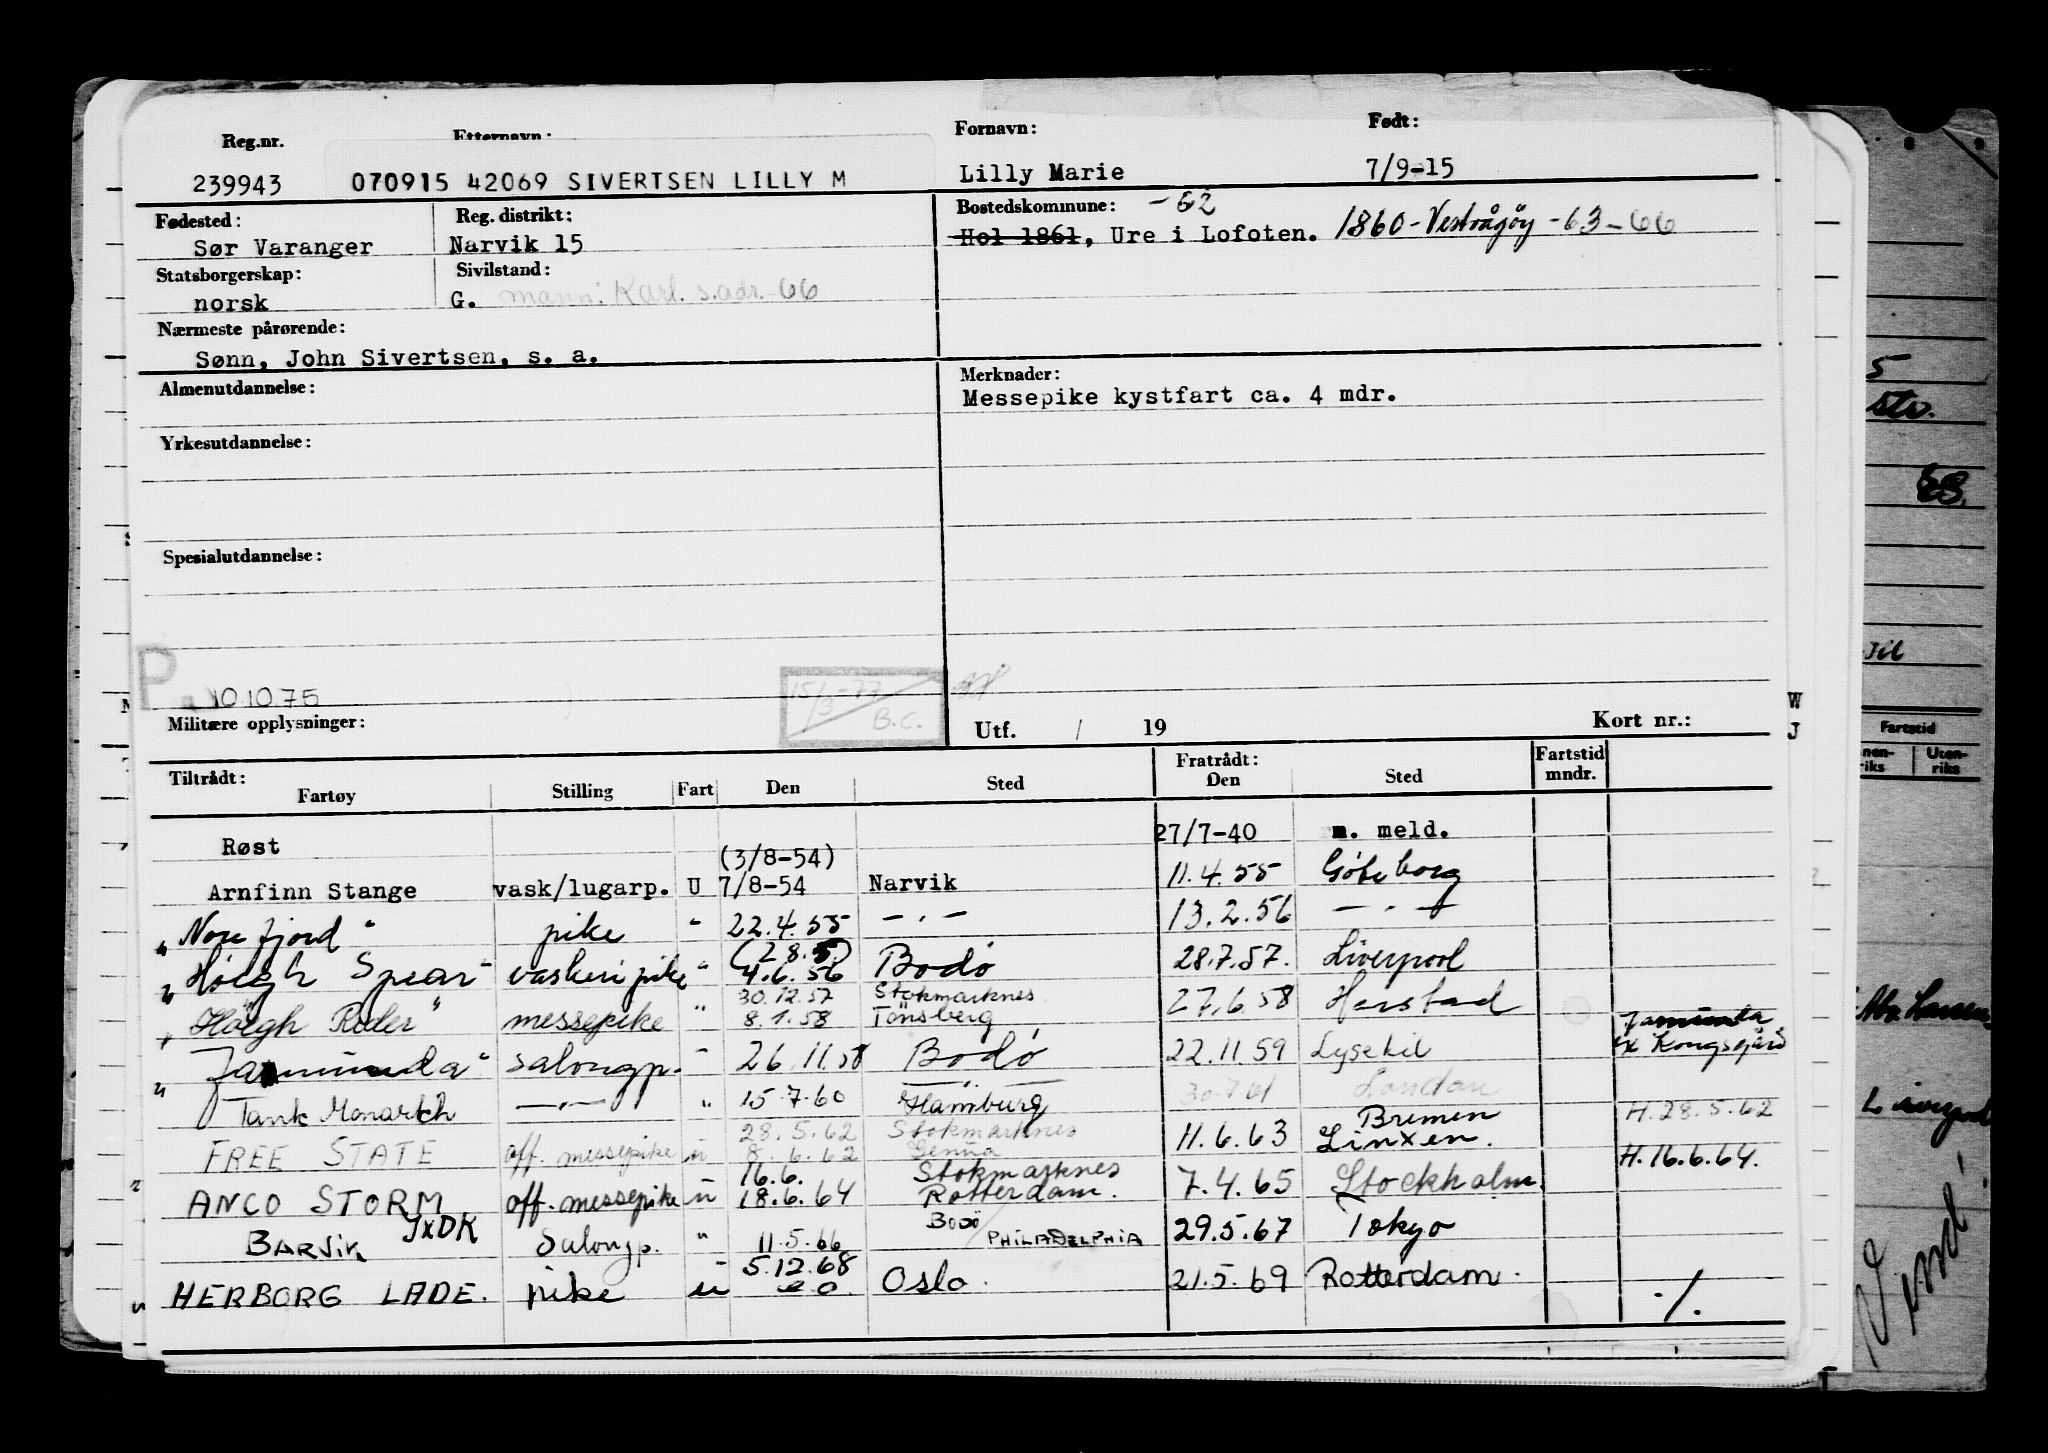 Reg.nr. Etternavn: Fornavn: Født:
239943 070915 42069 SIVERTSEN LILLY M Lilly Marie 7/9-15
Fødested: Reg. distrikt: Bostedskommune: -62
Sør Varanger Narvik 15 Hol 1861, Ure i Lofoten. 1860-Vestvågøy-63-66
Statsborgerskap: Sivilstand:
norsk G. mann: Karl. s.adr.-66
Nærmeste pårørende:
Sønn, John Sivertsen, s. a.
Almenutdannelse: Merknader:
Messepike kystfart ca. 4 mdr.
Yrkesutdannelse:
Spesialutdannelse:
P. 10.10.75 15/3-77 B.C.
Militære opplysninger: Utf. / 19 Kort nr.:
Tiltrådt: Fratrådt: Fartstid
Fartøy Stilling Fart Den Sted Den Sted mndr.
Røst 27/7-40 m. meld.
(3/8-54)
Arnfinn Stange vask/lugarp. U 7/8-54 Narvik 11.4.55 Göteborg
" Norefjord " pike " 22.4.55 — . — 13.2.56 — . —
(28.5)
" Höegh Spear " vaskeripike " 4.6.56 Bodö 28.7.57. Liverpool
30.12.57 Stokmarknes
" Höegh Rider " messepike " 8.1.58 Tönsberg 27.6.58 Harstad
" Jamunda " salongp. " 26.11.58 Bodö 22.11.59 Lysekil Jamunda ex Kongsfjord
Tank Monarch — . — " 15.7.60 Hamburg 30.7.61 London
28.5.62 Stokmarknes Bremen H.28.5.62
FREE STATE off. messepike ü 8.6.62 Genua 11.6.63 Linxen.
16.6. Stokmarknes H.16.6.64.
ANCO STORM off. messepike ü 18.6.64 Rotterdam. 7.4.65 Stockholm.
JXDK Bodö
BARVIK Salongp. " 11.5.66 PHILADELPHIA 29.5.67 Tokyo
5.12.68
HERBORG LADE. pike ü Oslo. 21.5.69 Rotterdam. ./.
5
stv.
68.
Fartstid
Uten-
riks
W
J